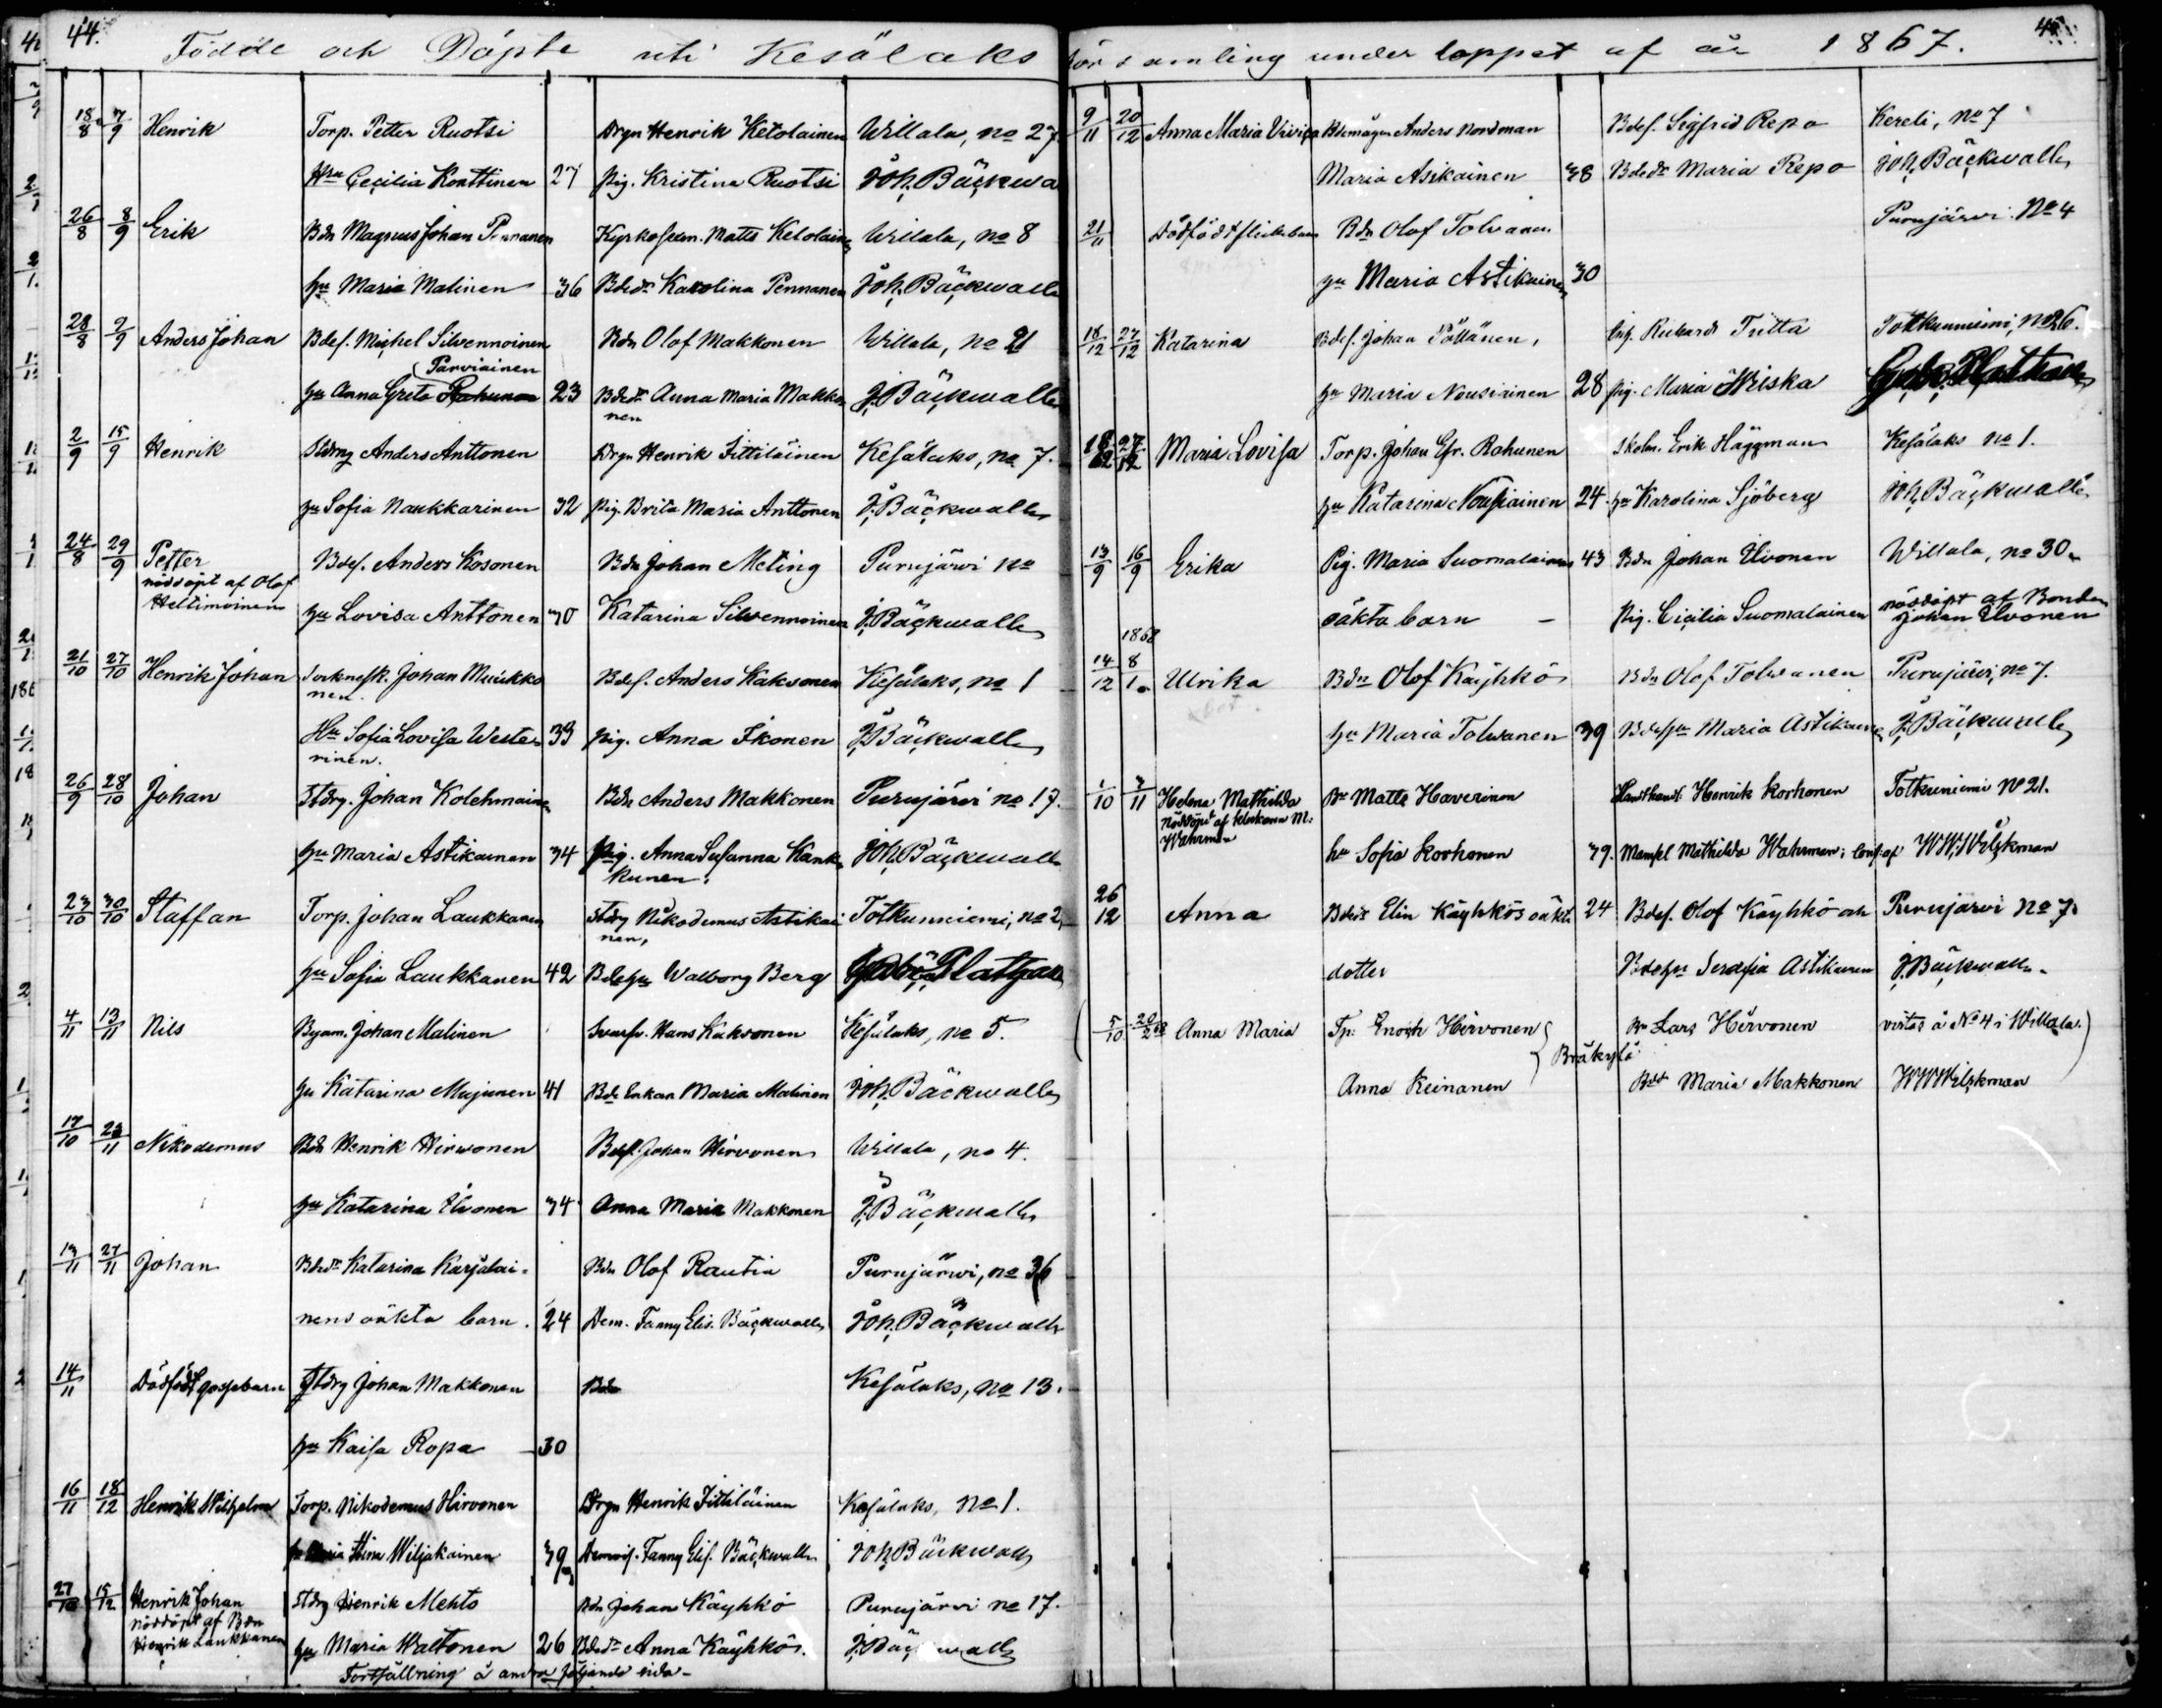 44.
Födde och Döpte uti Kesälaks församling under loppet af år 1867.
18/8 7/9 Henrik Torp. Petter Ruotsi Drgn Henrik Ketolainen Willala, no 27
Hru Cecilia Konttinen 27 Pig. Kristina Ruotsi Joh. Bäckwa
26/8 8/9 Erik Bdn Magnus Johan Pennanen Kyrkof. Matts Ketolain Willala, no 8
hu Maria Malinen 36 Bdedr Karolina Pennanen Joh. Bäckwall
28/8 9/9 Anders Johan Bdes. Michel Silvennoinen Bdn Olof Makkonen Willala, no 21
Parviainen
hu Anna Greta 23 Bdedr Anna Maria Makko J. Bäckwall
nen
2/9 15/9 Henrik Stdrng Anders Anttonen Drgn Henrik Tittiläinen Kesälaks, no 7.
hu Sofia Naukkarinen 32 Pig. Brita Maria Anttonen J. Bäckwall
24/8 29/9 Petter Bdes. Anders Kosonen Bdn Johan Meting Purujärvi no
nöddöpt af Olof
Heltimoinen
hu Lovisa Anttonen 30 Katarina Silvennoinen J. Bäckwall
21/10 27/10 Henrik Johan Johan Muikko Bdes. Anders Kaksonen Kesälaks, no 1
nen.
Hu Sofia Lovisa Weste 33 pig. Anna Ikonen J. Bäckwall
rinen.
26/9 28/10 Johan Stdrg. Johan Kolehmaine Bdn Anders Makkonen Purujärvi no 17.
hu Maria Astikainen 34 Pig. Anna Susanna Kank Joh. Bäckwall
kunen.
23/10 30/10 Staffan Torp. Johan Laukkanen Stdrg Nikodemus Astikai Totkunniemi, no 2
nen,
hu Sofia Laukkanen 42 Bdehu Walborg Berg
4/11 13/11 Nils Byam. Johan Malinen Svarfv. Hans Kaksonen Kesälaks, no 5.
hu Katarina Mujunen 41 Bde Enkan Maria Malinen Joh. Bäckwall
17/10 23/11 Nikodemus Bdn Henrik Hirvonen Bdes. Johan Hirvonen Willala, no 4.
hu Katarina Ilvonen 34 Anna Maria Makkonen J. Bäckwall
13/11 27/11 Johan Bdedr Katarina Karjalai- Bdn Olof Rautia Purujärwi, no 36
nens oäkta barn. 24 Dem. Fanny Elis. Bäckwall Joh. Bäckwall
14/11 Dödfödt gossebarn Stdrg Johan Makkonen Bdn Kesälaks, no 13.
hu Kaisa Ropa 30
16/11 18/12 Henrik Wilhelm Torp. Nikodemus Hirvonen Drgn Henrik Tittiläinen Kesälaks, no 1.
hu Maria Stina Wiljakainen 39 Demois. Fanny Elis. Bäckwall Joh. Bäckwall
27/10 15/12 Henrik Johan Stdrg Henrik Mehto Bdn Johan Käyhkö Purujärvi no 17.
nöddöpt af Bdn
Henrik Laukkanen
hu Maria Waltonen 26 Bdedr Anna Käyhkö. J. Bäckwall
Fortsättning å andra följande sida
9/11 20/12 Anna Maria Vivica Bdemågen Anders Nordman Bdes. Sigfrid Repo Kereli, no 7
Maria Asikainen 38 Bdedr Maria Repo Joh. Bäckwall
21/11 Dödfödt flickebarn Bdn Olof Tolvanen Purujärvi No 4
hu Maria Astikainen 30
18/12 27/12 Katarina Bdes. Johan Pöllänen, Rickard Tutta Totkunniemi, no 26.
hu Maria Nousiainen 28 pig. Maria Hiiska
18/12 27/12 Maria Lovisa Torp. Johan Efr. Rahunen Skolm. Erik Häggman Kesälaks no 1.
hu Katarina Nousiainen 24. hu Karolina Sjöberg Joh. Bäckwall
13/9 16/9 Erika Pig. Maria Suomalainen 43 Bdn Johan Ilvonen Willala, no 30
oäkta barn - Pig. Cicilia Suomalainen nöddöpt af Bonden
Johan Ilvonen
1868
14/12 8/1 Ulrika Bdn Olof Käyhkö Bdn Olof Tolwanen Purujärvi, no 7.
hu Maria Tolwanen 39 Bdehu Maria Astikainen J. Bäckwall
1/10 3/11 Helena Mathilda Bn Matts Haverinen Henrik Korhonen Totkuniemi No 21.
nöddöpt af Klockaren M.
Wahrman
hu Sofia Korhonen 39. Mamsel Mathilda Wahrman; W.W. Wilskman
26/12 Anna Bdedr Elin Käyhkös oäkta 24 Bdes. Olof Käyhkö och Purujärvi No 7.
dotter Bdehu Serafia Astikainen J. Bäckwall.
(5/10 20/2 68 Anna Maria Tp: Enoch Hirvonen Bn Lars Hirvonen vistas å No 4 i Willala.)
Bräkylä
Anna Keinanen Bdd Maria Makkonen W W Wilskman